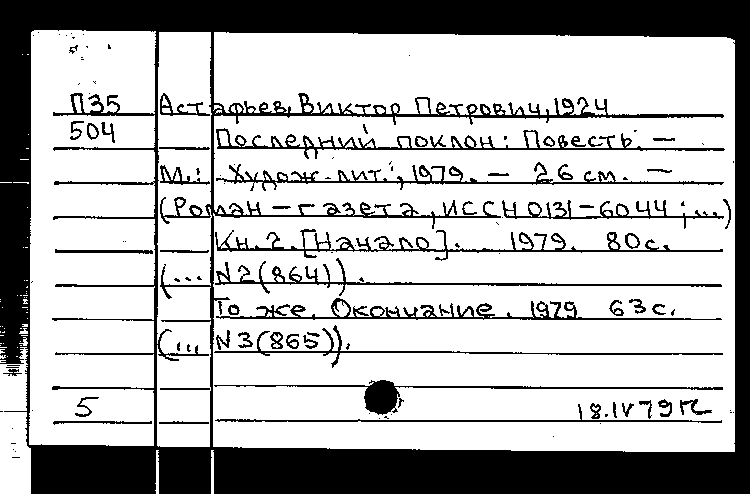 П35 Астафьев, Виктор Петрович, 1924
504 Последний поклон: Повесть. —
М.: Худож. лит., 1979. — 26 см. —
(Роман-газета, ИССН 0131-6044; ...)
Кн. 2. [Начало]. 1979. 80 с.
(... N 2 (864)).
То же. Окончание. 1979 63 с.
(... N 3 (865)).
5 18.IV 79